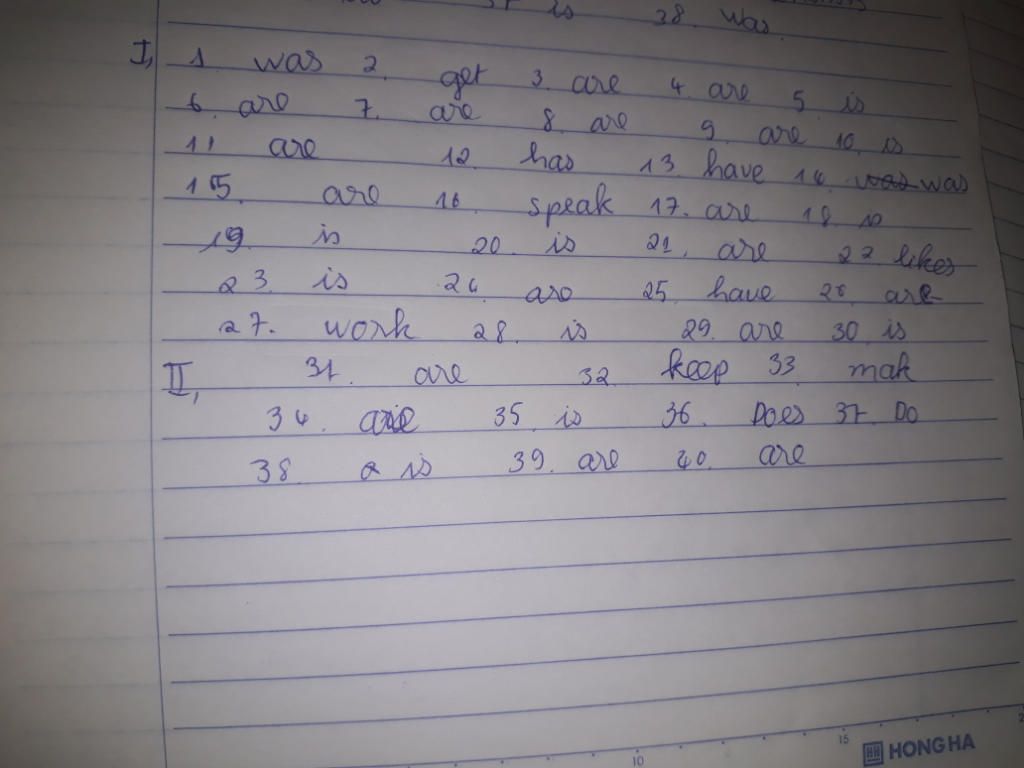 37 is 38. was
I, 1 was 2. get 3. are 4 are 5 is
6. are 7. are 8. are 9. are 10. is
11 are 12. has 13. have 14. was was
15. are 16. speak 17. are 18 is
19. is 20. is 21. are 22 likes
23. is 24. are 25. have 26. are
27. work 28. is 29. are 30. is
II, 31. are 32. keep 33. mak
34. 35. is 36. Does 37. Do
38. a is 39. are 40. are
10 15
HONG HA